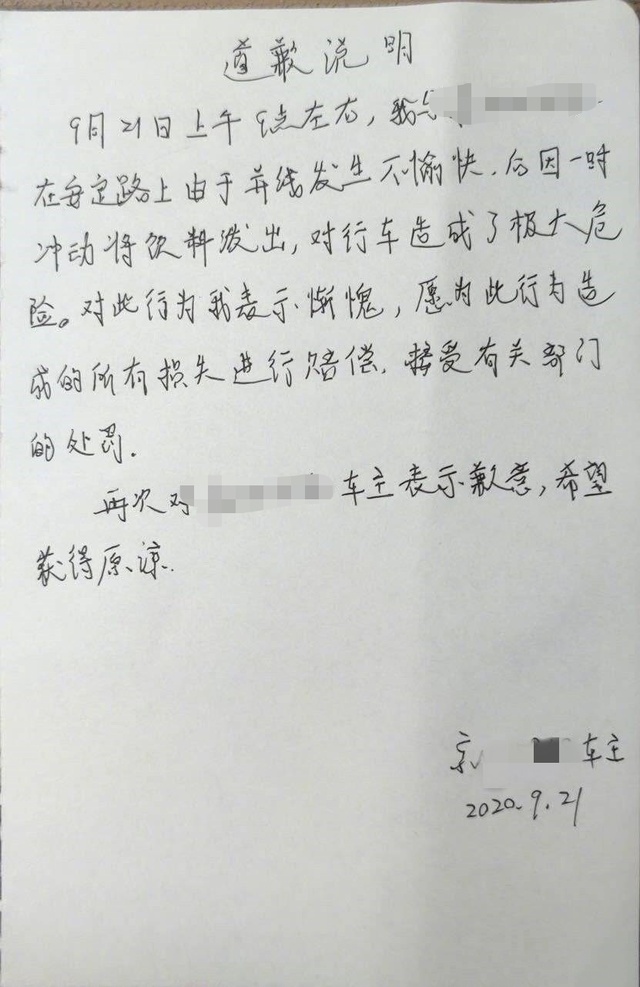 道歉说明
9月21日上午9点左右，我与
在安定路上由于并线发生不愉快，后因一时
冲动将饮料泼出，对行车造成了极大危
险。对此行为我表示惭愧，愿为此行为造
成的所有损失进行赔偿，接受有关部门
的处罚．
再次对
车主表示歉意，希望
获得原谅．
京
车主
2020.9.21